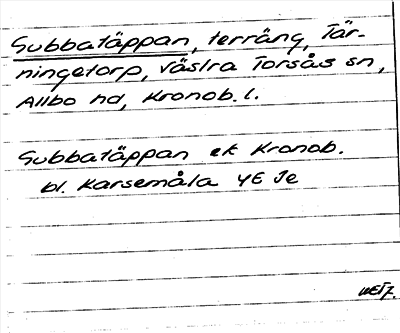 Gubbatäppan, terräng, Tär-
ningetorp, Västra Torsås sn,
Allbo hd, Kronob. l.
Gubbatäppan ek Kronob.
bl. Karsemåla 4E Je